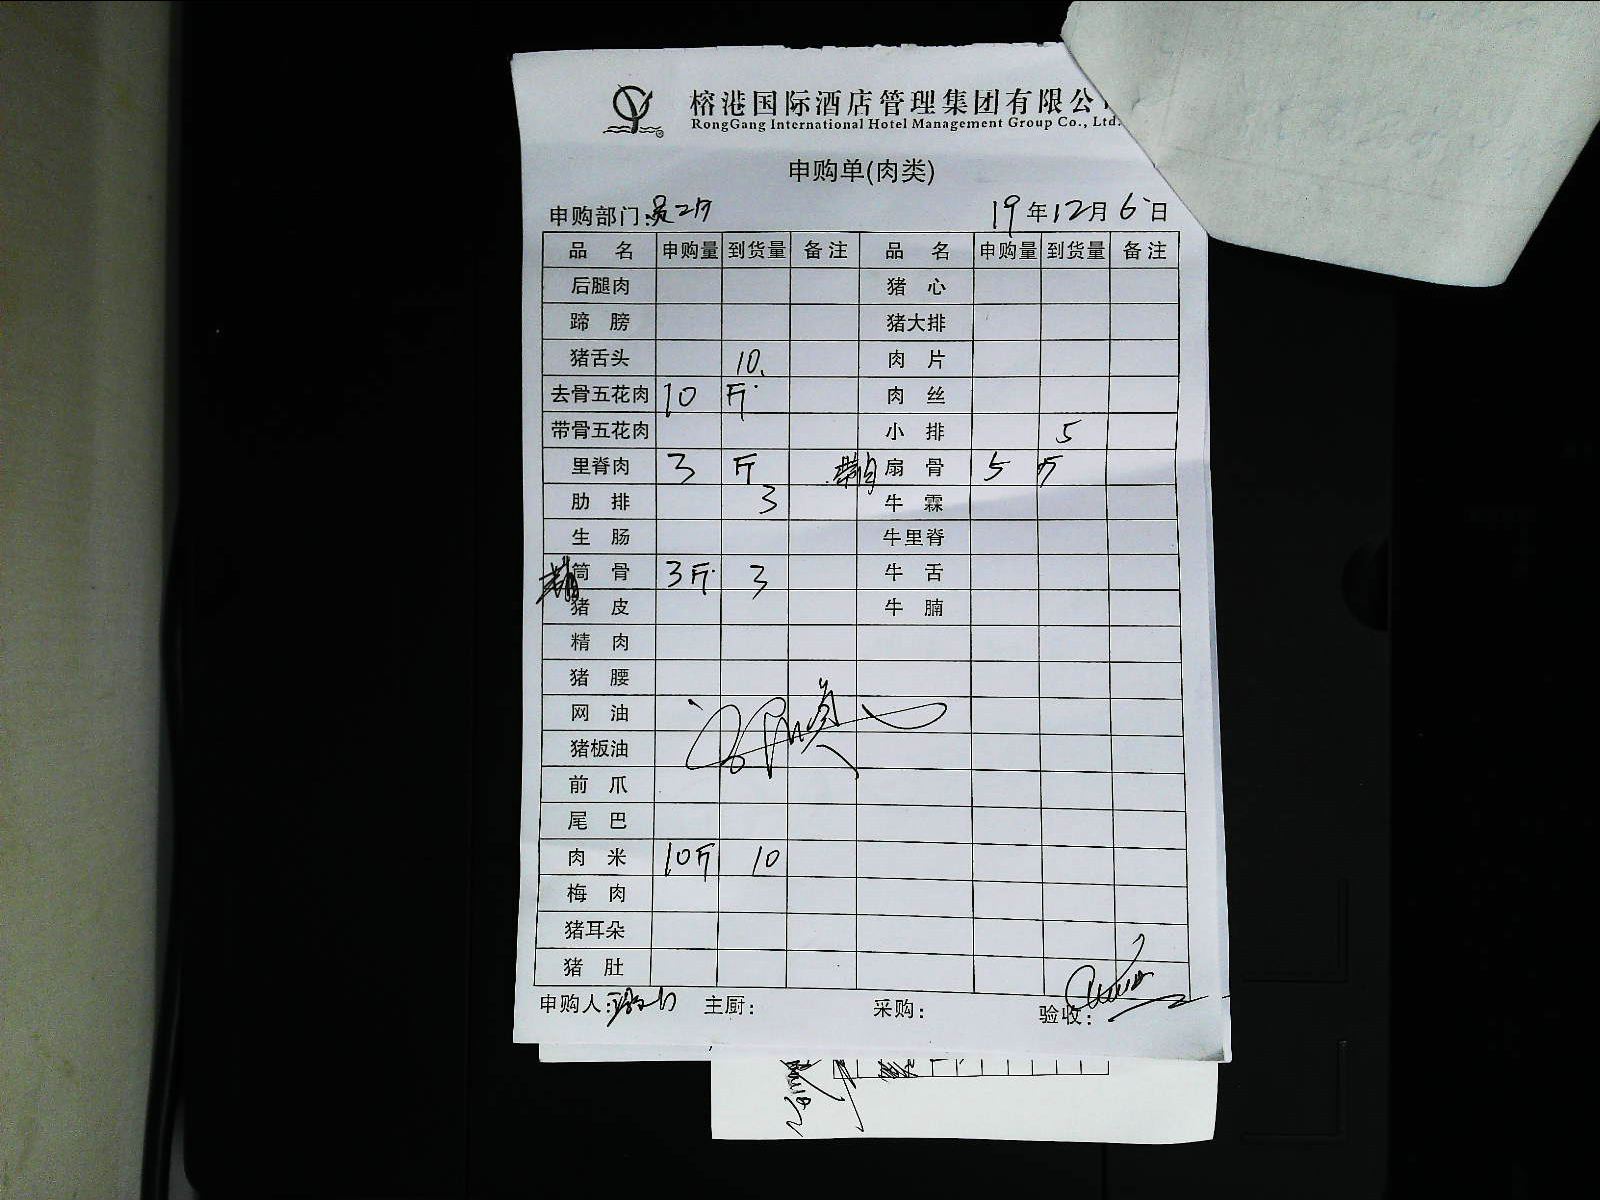 榕港国际酒店管理集团有限公
RongGang International Hotel Management Group Co., Ltd.
申购单(肉类)
申购部门: 19年12月6日
品 名 申购量 到货量 备注 品 名 申购量 到货量 备注
后腿肉 猪 心
蹄 膀 猪大排
猪舌头 10. 肉 片
去骨五花肉 10 斤 肉 丝
带骨五花肉 小 排 5
里脊肉 3 斤 带肉 扇 骨 5 斤
肋 排 3 牛 霖
生 肠 牛里脊
筒 骨 3斤 3 牛 舌
猪 皮 牛 腩
精 肉
猪 腰
网 油
猪板油
前 爪
尾 巴
肉 米 10斤 10
梅 肉
猪耳朵
猪 肚
申购人: 主厨: 采购: 验收: